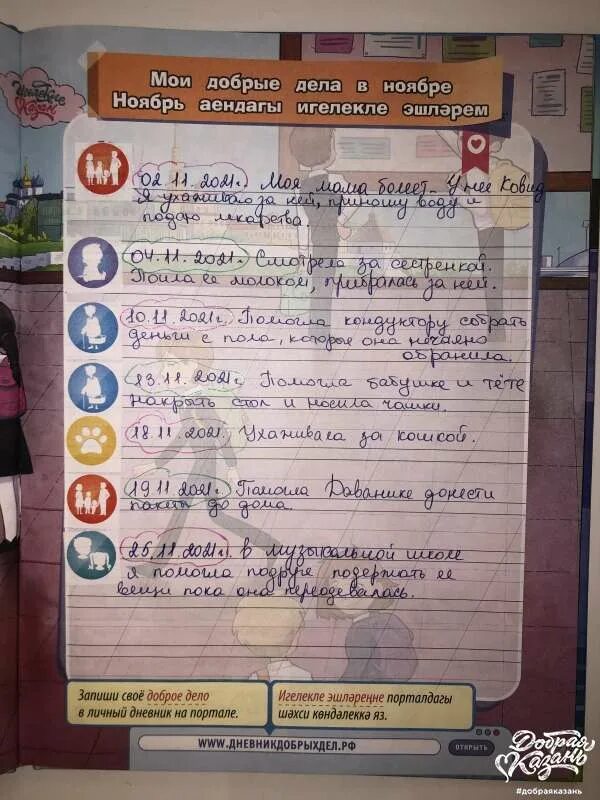 Добрая Казань
Мои добрые дела в ноябре
Ноябрь аендагы игелекле эшләрем
02.11.2021г. Моя мама болеет. У нее Ковид
Я ухаживаю за ней, приношу воду и
подаю лекарства.
04.11.2021г. Смотрела за сестренкой.
Поила ее молоком, прибралась за ней.
10.11.2021г. Помогла кондуктору собрать
деньги с пола, которые она нечаяно
обранила.
13.11.2021г. Помогла бабушке и тёте
накрыть стол и носила чашки.
18.11.2021. Ухаживала за кошкой.
19.11.2021г. Помогла донести
пакеты до дома
25.11.2021г. в музыкальной школе
я помогла подруге подержать ее
вещи пока она переодевалась.
Запиши своё доброе дело
в личный дневник на портале.
Игелекле эшләреңне порталдагы
шәхси көндәлеккә яз.
WWW.ДНЕВНИКДОБРЫХДЕЛ.РФ
ОТКРЫТЬ
Добрая Казань
#добраяказань